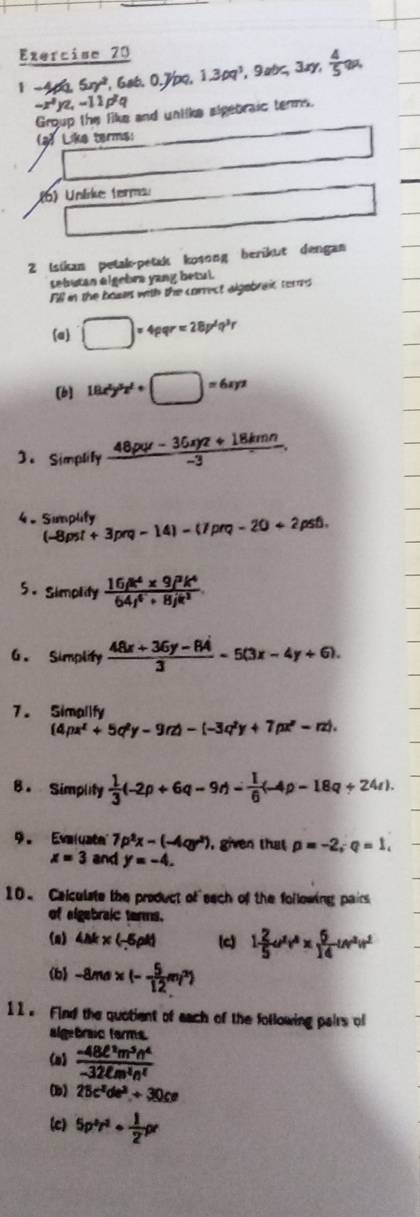 Exercise 20
1 -4pq, 5xy², 6ab, 0.7pq, 1.3pq³, 9abc, 3xy, 4/5 qp,
-x²yz, -11p²q
Group the like and unlike algebraic terms.
(a) Like terms:
(b) Unlike terms:
2 Isikan petak-petak kosong berikut dengan
sebutan algebra yang betul.
Fill in the boxes with the correct algebraic terms
(a) □ ÷ 4pqr = 28p²q³r
(b) 18x²y³z² ÷ □ = 6xyz
3. Simplify (48pqr - 36xyz + 18kmn)/-3.
4. Simplify
(-8pst + 3prq - 14) - (7prq - 20 + 2pst).
5. Simplify
6. Simplify (48x + 36y - 84)/3 - 5(3x - 4y + 6).
7. Simplify
(4px² + 5q²y - 9rz) - (-3q²y + 7px² - rz).
8. Simplify 1/3(-2p + 6q - 9r) - 1/6(-4p - 18q + 24r).
9. Evaluate 7p²x - (-4qy²), given that p = -2, q = 1,
x = 3 and y = -4.
10. Calculate the product of each of the following pairs
of algebraic terms.
(a) 4hk × (-5pk) (c)
(b) -8mn × (- 5/12 mj²)
11. Find the quotient of each of the following pairs of
algebraic terms.
(a)
(b) 25c²de² ÷ 30ce
(c) 5p²r² ÷ 1/2 pr